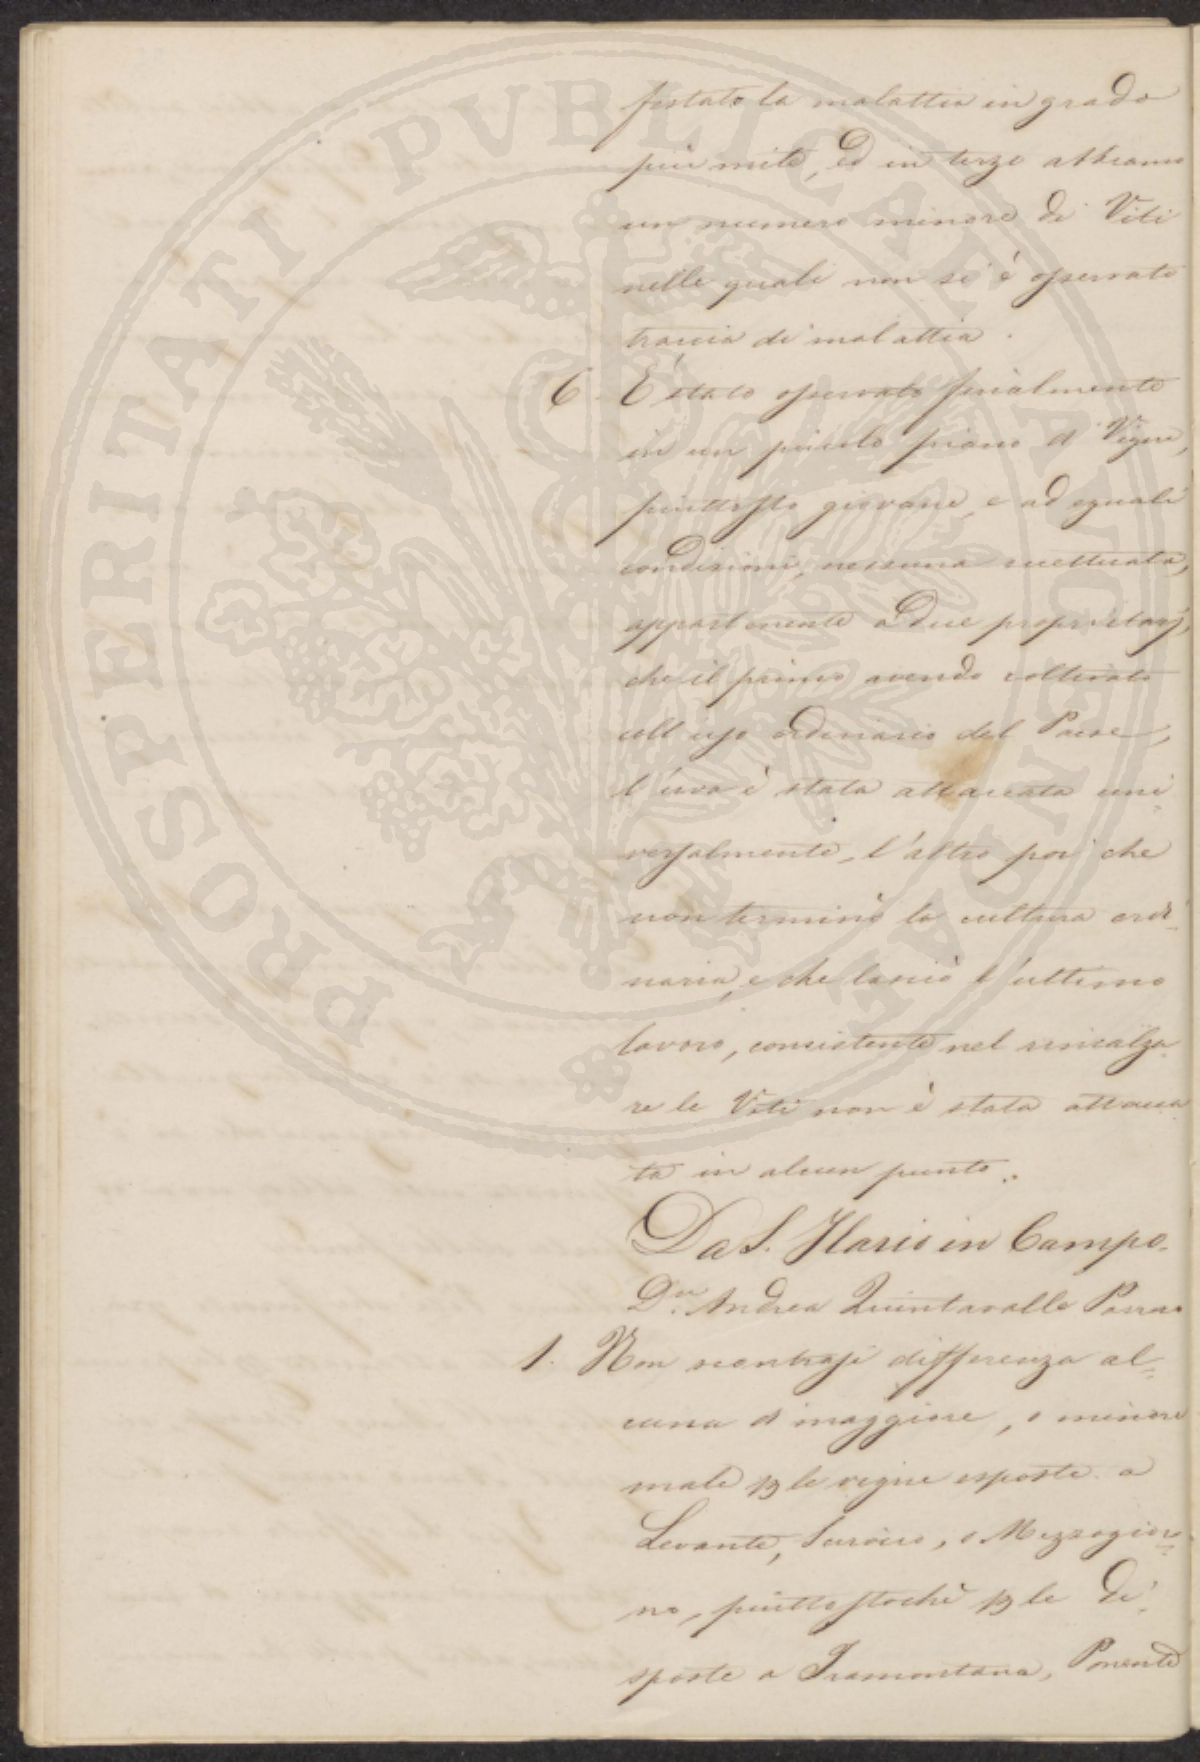 PROSPERITATI PVBLICAE AVGENDAE
festato la malattia in grado
più mite, ed in terzo abbiamo
un numero minore di Viti
nelle quali non si è osservato
traccia di malattia.
6. È stato osservato finalmente
in un piccolo piano di Vigne,
piuttosto giovane, e ad eguali
condizioni, nessuna eccettuata,
appartenente a due proprietarj,
che il primo avendo coltivato
coll'uso ordinario del Paese,
l'uva è stata attaccata uni
versalmente, l'altro poi che
non terminò la cultura ordi
naria, e che lasciò l'ultimo
lavoro, consistente nel rincalza
re le Viti non è stata attacca
ta in alcun punto.
Da S. Ilario in Campo.
Andrea Quintavalle
1. Non riscontrasi differenza al=
cuna di maggiore, o minore
male p le vigne esposte a
Levante, Scirocco, o Mezzogior=
no, piuttostochè p le di
sposte a Tramontana, Ponente